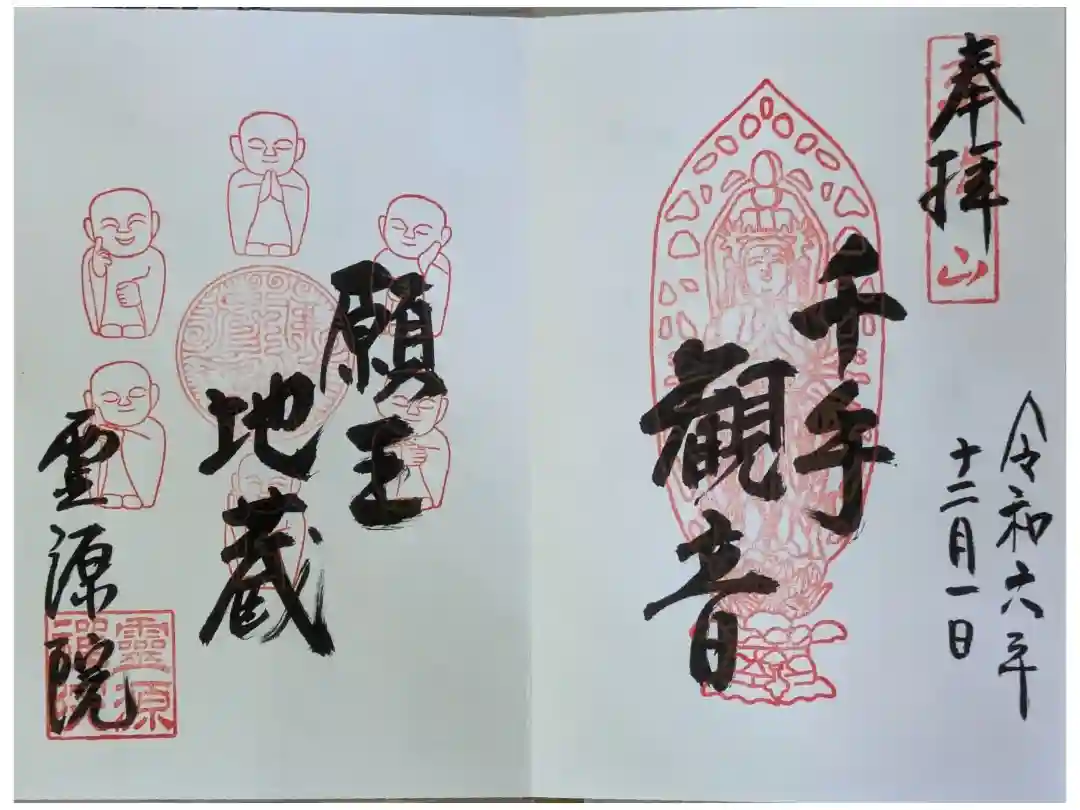 奉拝
山
令和六年
十二月一日
千手
觀音
願王
地蔵
霊源院
靈源